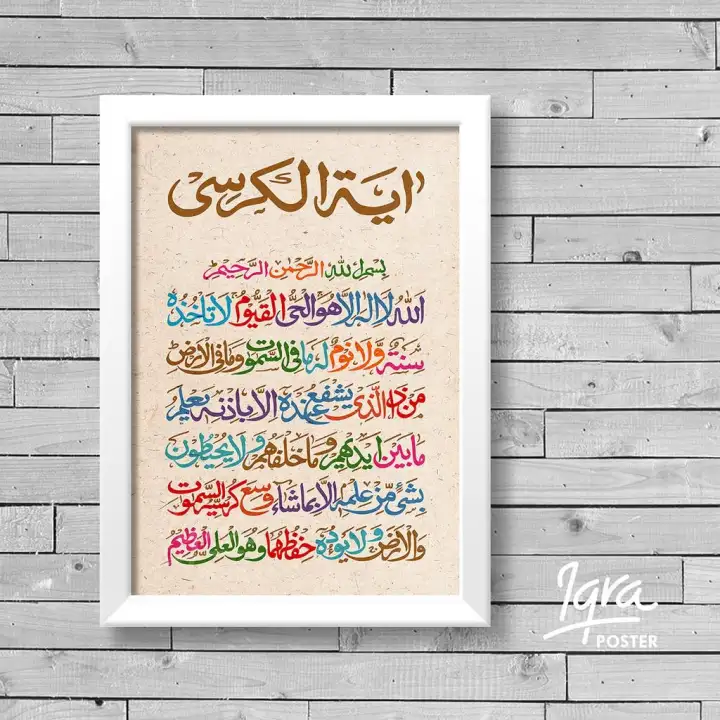 اٰية الكرسى
بسم الله الرحمٰن الرحيم
الله لا اله الا هو الحى القيوم لا تاخذه
سنة ولا نوم له ما فى السمٰوت وما فى الارض
من ذا الذى يشفع عنده الا باذنه يعلم
ما بين ايديهم وما خلفهم ولا يحيطون
بشئ من علمه الا بما شاء وسع كرسيه السمٰوت
والارض ولا يؤده حفظهما وهو العلى العظيم
Iqra
POSTER